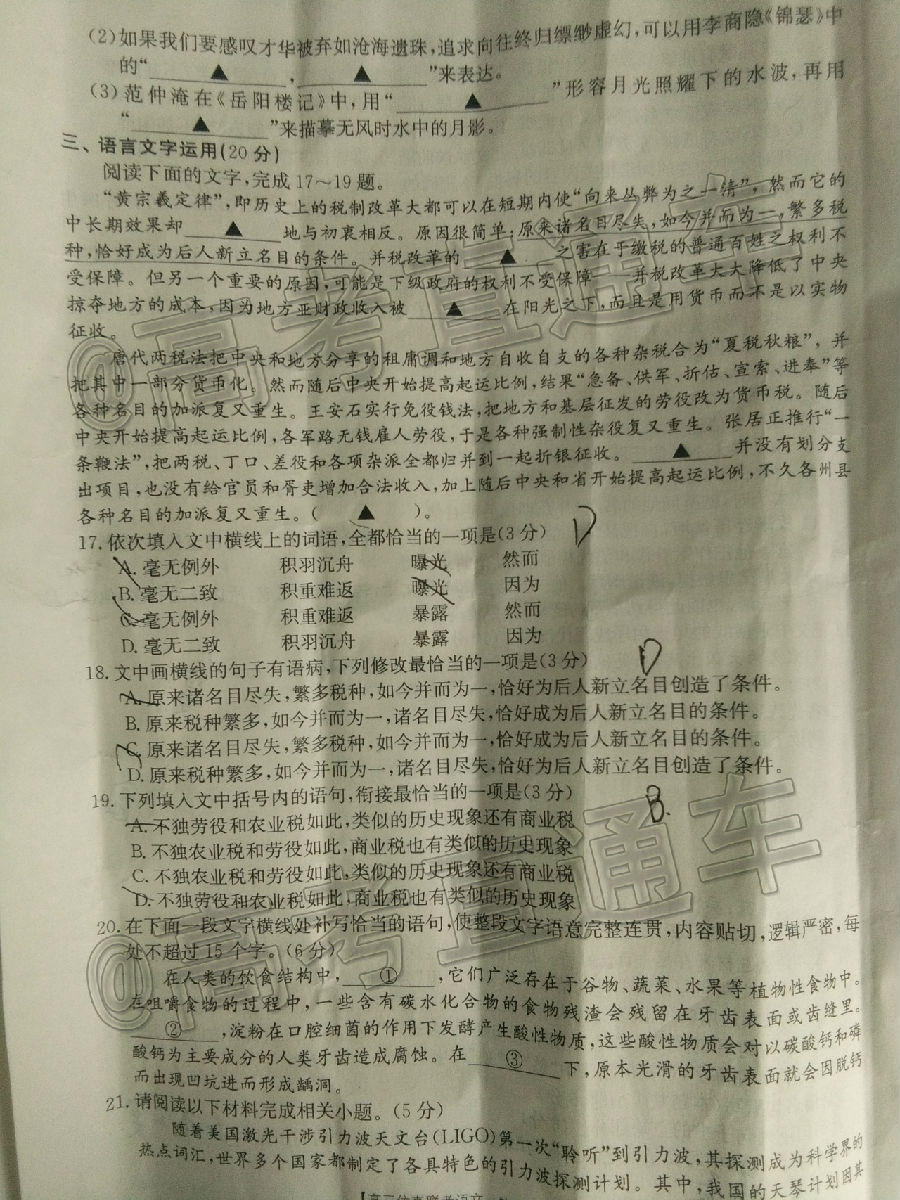 (2)如果我们要感叹才华被弃如沧海遗珠,追求向往终归缥缈虚幻,可以用李商隐《锦瑟》中
的“▲,▲”来表达。
(3)范仲淹在《岳阳楼记》中,用“▲”形容月光照耀下的水波,再用
“▲”来描摹无风时水中的月影。
三、语言文字运用(20分)
阅读下面的文字,完成17~19题。
“黄宗羲定律”,即历史上的税制改革大都可以在短期内使“向来丛弊为之一清”,然而它的
中长期效果却▲地与初衷相反。原因很简单:原来诸名目尽失,如今并而为一,繁多税
种,恰好成为后人新立名目的条件。并税改革的▲之害在于缴税的普通百姓之权利不
受保障。但另一个重要的原因,可能是下级政府的权利不受保障——并税改革大大降低了中央
掠夺地方的成本,因为地方亚财政收入被▲在阳光之下,而且是用货币而不是以实物
征收。
唐代两税法把中央和地方分享的租庸调和地方自收自支的各种杂税合为“夏税秋粮”,并
把其中一部分货币化。然而随后中央开始提高起运比例,结果“急备、供军、折估、宣索、进奉”等
各种名目的加派复又重生。王安石实行免役钱法,把地方和基层征发的劳役改为货币税。随后
中央开始提高起运比例,各军路无钱雇人劳役,于是各种强制性杂役复又重生。张居正推行“一
条鞭法”,把两税、丁口、差役和各项杂派全都归并到一起折银征收。▲并没有划分支
出项目,也没有给官员和胥吏增加合法收入,加上随后中央和省开始提高起运比例,不久各州县
各种名目的加派复又重生。(▲)。
17.依次填入文中横线上的词语,全都恰当的一项是(3分) D
A.毫无例外 积羽沉舟 曝光 然而
B.毫无二致 积重难返 曝光 因为
C.毫无例外 积重难返 暴露 然而
D.毫无二致 积羽沉舟 暴露 因为
18.文中画横线的句子有语病,下列修改最恰当的一项是(3分) D
A.原来诸名目尽失,繁多税种,如今并而为一,恰好为后人新立名目创造了条件。
B.原来税种繁多,如今并而为一,诸名目尽失,恰好成为后人新立名目的条件。
C.原来诸名目尽失,繁多税种,如今并而为一,恰好成为后人新立名目的条件。
D.原来税种繁多,如今并而为一,诸名目尽失,恰好为后人新立名目创造了条件。
19.下列填入文中括号内的语句,衔接最恰当的一项是(3分) B.
A.不独劳役和农业税如此,类似的历史现象还有商业税
B.不独农业税和劳役如此,商业税也有类似的历史现象
C.不独农业税和劳役如此,类似的历史现象还有商业税
D.不独劳役和农业税如此,商业税也有类似的历史现象
20.在下面一段文字横线处补写恰当的语句,使整段文字语意完整连贯,内容贴切,逻辑严密,每
处不超过15个字。(6分)
在人类的饮食结构中,①,它们广泛存在于谷物、蔬菜、水果等植物性食物中。
在咀嚼食物的过程中,一些含有碳水化合物的食物残渣会残留在牙齿表面或齿缝里。
②,淀粉在口腔细菌的作用下发酵产生酸性物质,这些酸性物质会对以碳酸钙和磷
酸钙为主要成分的人类牙齿造成腐蚀。在③下,原本光滑的牙齿表面就会因脱钙
而出现凹坑进而形成龋洞。
21.请阅读以下材料完成相关小题。(5分)
随着美国激光干涉引力波天文台(LIGO)第一次“聆听”到引力波,其探测成为科学界的
热点词汇,世界多个国家都制定了各具特色的引力波探测计划。其中,我国的天琴计划因其
@高考直通车
@高考直通车